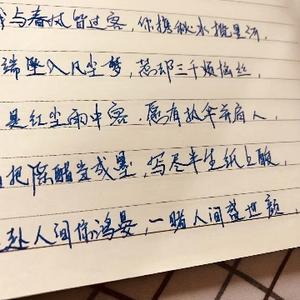 我与春风皆过客,你携秋水揽星河,
端坠入凡尘梦,惹却三千烦恼丝,
是红尘雨中客,愿有伞并肩人,
把陈醋当成墨,写尽半生纸上酸,
赴人间惊鸿宴,一睹人间盛世颜,